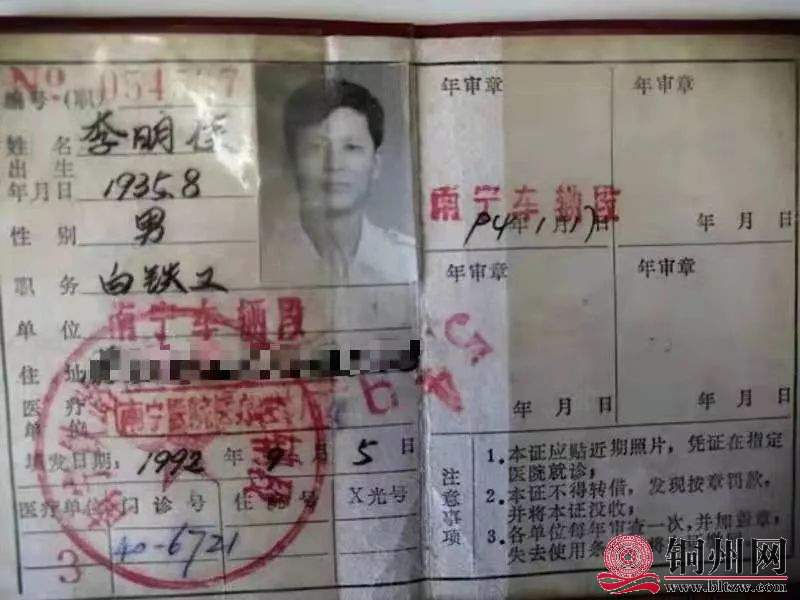 No
编号(职)
姓名 李明
出生
年月日 1935.8
性别 男
职务 白铁工
单位 南宁车辆段
住址
医疗
单位 南宁
填发日期: 1992 年 9 月 5 日
医疗单位 门诊号 住院号 X光号
3 40-6721
年审章
南宁车辆段
94年1月17日
年审章
年 月 日
年审章
年 月 日
年审章
年 月 日
注意事项
1.本证应贴近期照片，凭证在指定
医院就诊；
2.本证不得转借，发现按章罚款，
并将本证没收；
3.各单位每年审查一次，并加盖章，
失去使用条
铜州网
www.bltzw.com